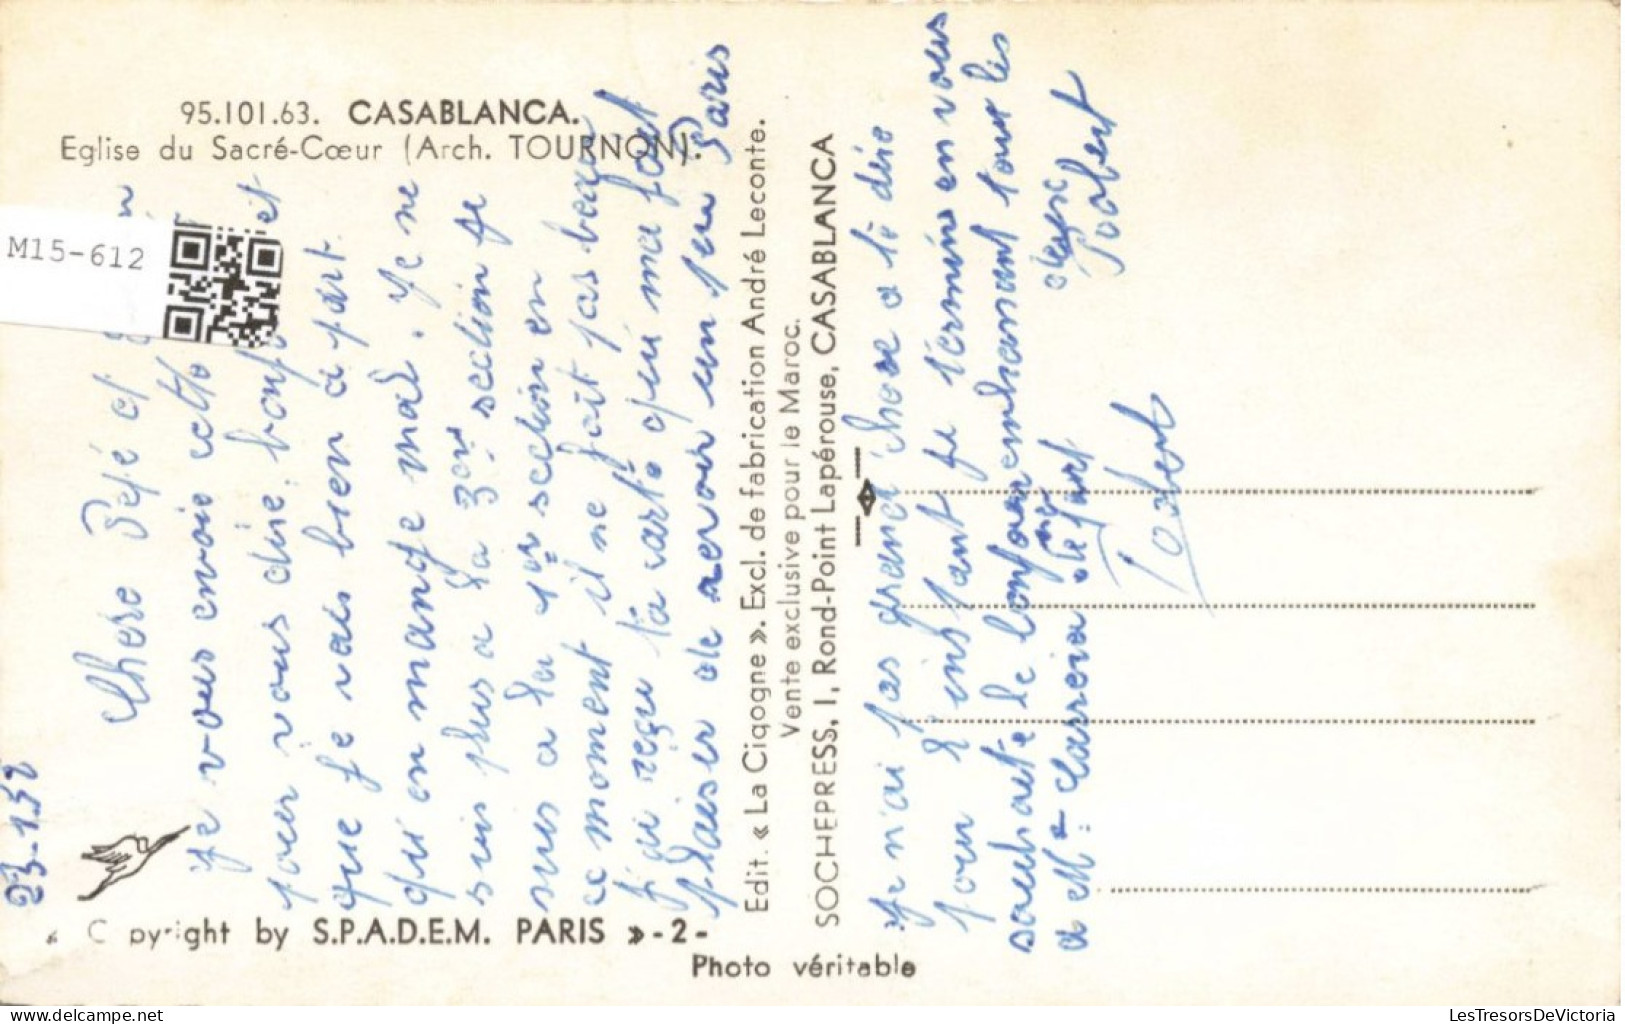 95.101.63. CASABLANCA.
Eglise du Sacré-Cœur (Arch. TOURNON).
M15-612
23.1.58
Chere Pépé et
Je vous envoie cette
pour vous dire bonjour et
que je vais bien à part
qu'on mange mal. Je ne
suis plus a la 3em section je
suis a la 1er section en
ce moment il ne fait pas beau
J'ai reçu ta carte qui ma fait
plaisir de revoir un peu Paris
Edit. « La Cigogne ». Excl. de fabrication André Leconte.
Vente exclusive pour le Maroc.
SOCHEPRESS, 1, Rond-Point Lapérouse, CASABLANCA
Je n'ai pas grand chose a te dire
pour l'instant je termine en vous
souhaite le bonjour en embrassant tous les
a Mme de part
Robert
Robert
« Copyright by S.P.A.D.E.M. PARIS » -2-
Photo véritable
delcampe.net
LesTresorsDeVictoria